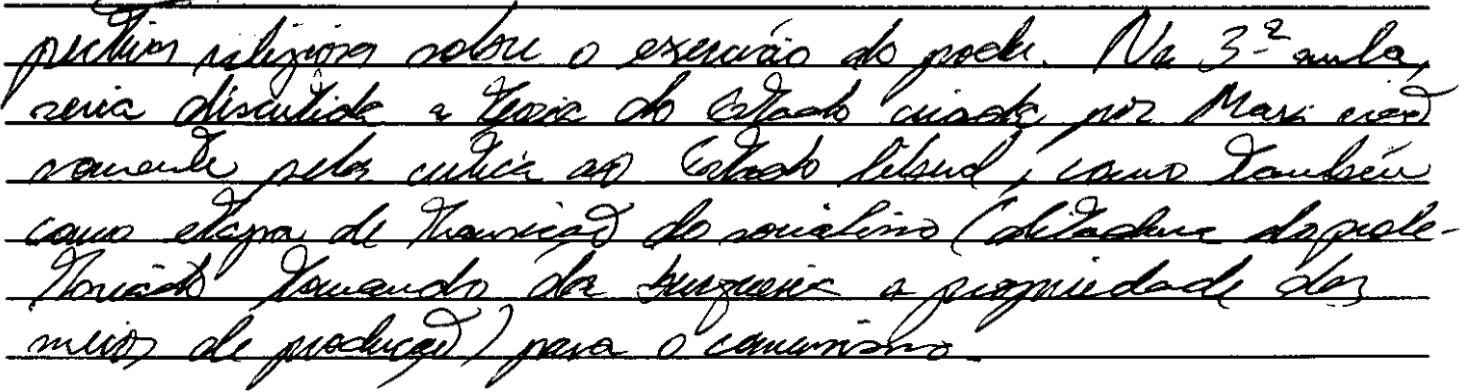 pectiva religiosa sobre o exercício do poder. Na 3ª aula,
seria discutida a teoria do Estado criada por Marx não
somente pela crítica ao Estado liberal, como também
como etapa de transição do socialismo (ditadura do prole-
tariado tomando da burguesia a propriedade dos
meios de produção) para o comunismo.